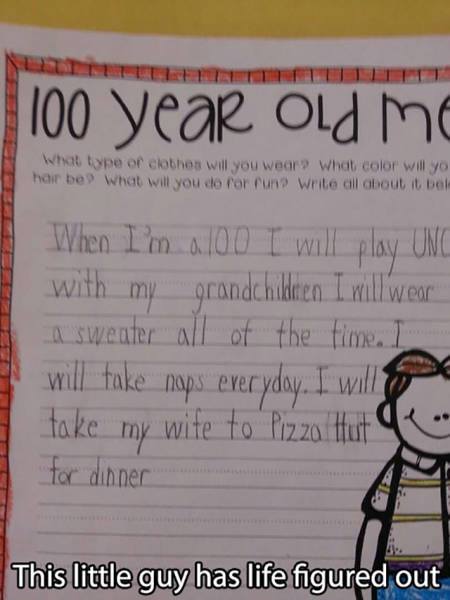 100 year old me
What type of clothes will you wear? What color will yo
hair be? What will you do for fun? Write all about it bel
When I'm a 100 I will play UNO
with my grandchildren I will wear
a sweater all of the time. I
will take naps everyday. I will
take my wife to Pizza Hut
for dinner
This little guy has life figured out